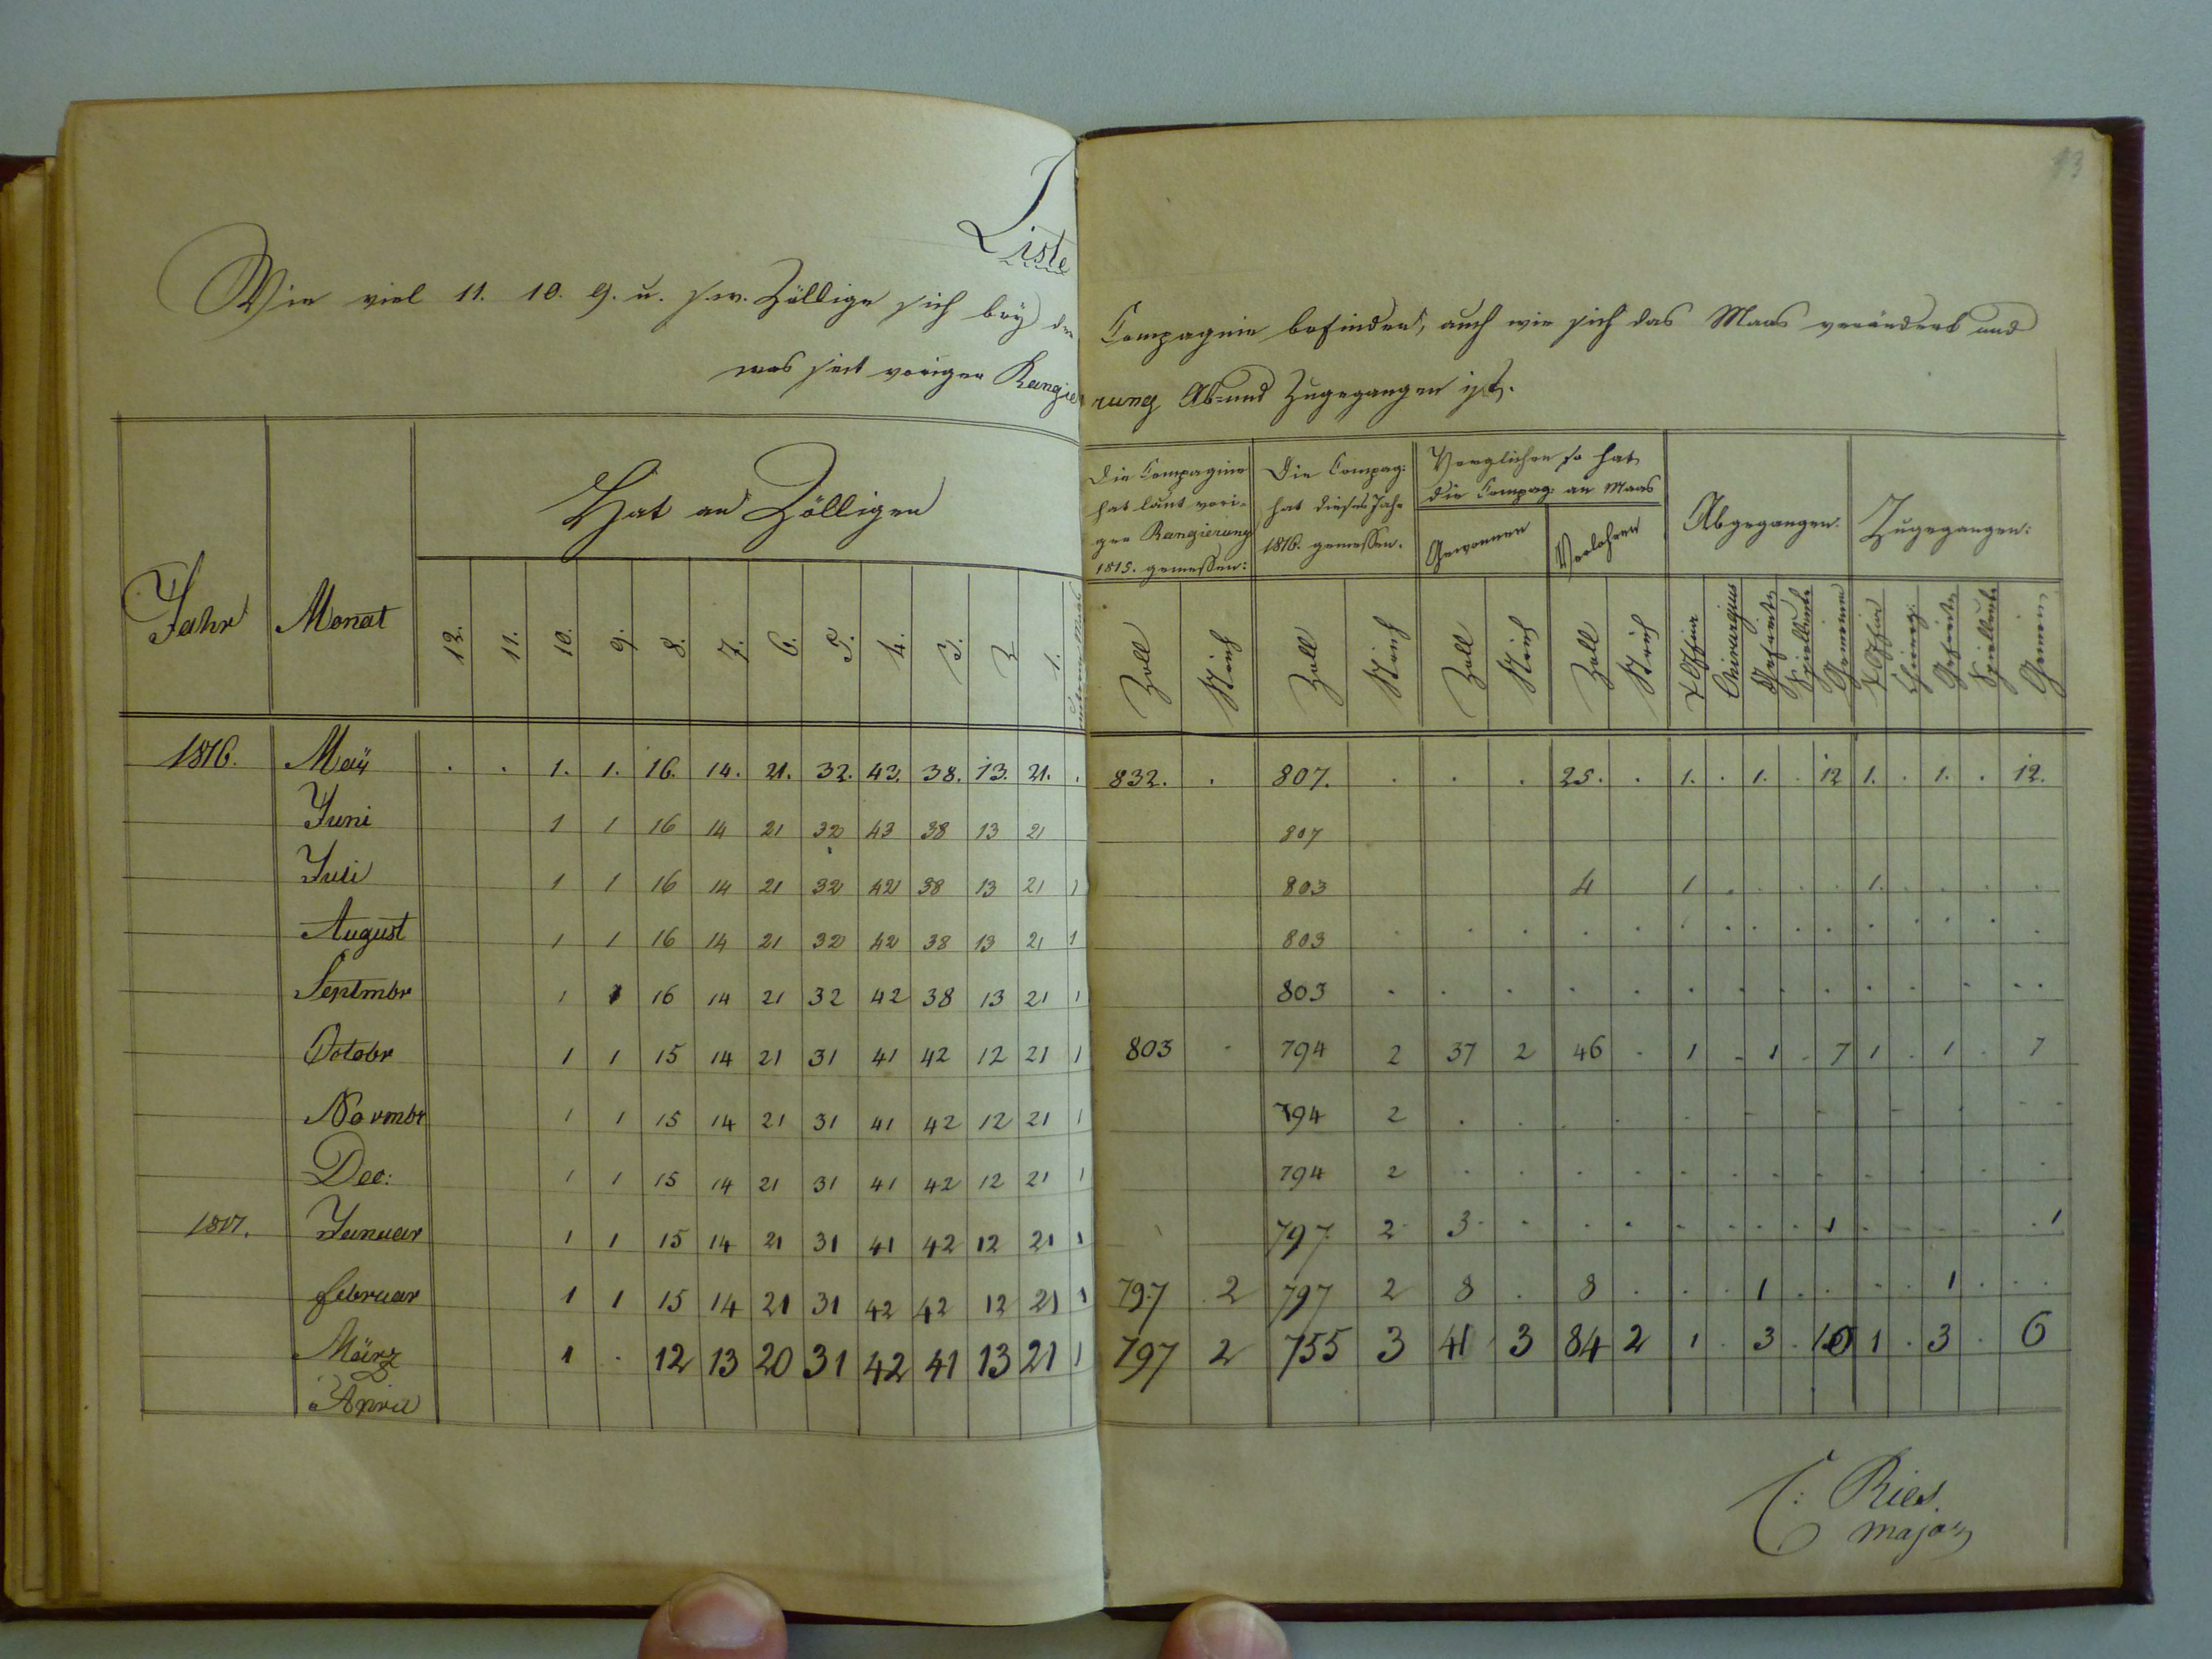 13
Liste
Wie viel 11. 10. 9. u. s. w. Zöllige sich beÿ der Compagnie befinden, auch wie sich das Maas verändert und
was seit voriger Rangierung Ab- und Zugegangen ist.
Jahr Monat Hat an Zölligen Die Compagnie hat laut voriger Rangierung 1815. gemessen: Die Compag: hat dieses Jahr 1816. gemessen. Verglichen so hat die Compag: an Maas Abgegangen. Zugegangen:
Gewonnen Verlohren
12. 11. 10. 9. 8. 7. 6. 5. 4. 3. 2 1. unterm Maas Zoll Strich Zoll Strich Zoll Strich Zoll Strich Chirurgus Gefreite Spielleute Gemeine Chirurg: Gefreite Spielleute Gemein
1816. Maÿ . . 1. 1. 16. 14. 21. 32. 43. 38. 13. 21. . 832. . 807. . . . 25. . 1. . 1. . 12 1. . 1. . 12.
Juni 1 1 16 14 21 32 43 38 13 21 807
Juli 1 1 16 14 21 32 42 38 13 21 1 803 4 1 . . . . 1. . . . .
August 1 1 16 14 21 32 42 38 13 21 1 803 . . . . . . . . . . . . . . . .
Septmbr 1 1 16 14 21 32 42 38 13 21 1 803 . . . . . . . . . . . . . . .
Octobr 1 1 15 14 21 31 41 42 12 21 1 803 . 794 2 37 2 46 . 1 . 1 . 7 1 . 1 . 7
Novmbr 1 1 15 14 21 31 41 42 12 21 1 794 2
Dec: 1 1 15 14 21 31 41 42 12 21 1 794 2
1817. Januar 1 1 15 14 21 31 41 42 12 21 1 797 2 3 . . . . . . . 1 . . . . 1
februar 1 1 15 14 21 31 42 42 12 21 1 797 2 797 2 8 . 8 . . . 1 . . . . 1 . .
März 1 . 12 13 20 31 42 41 13 21 1 797 2 755 3 41 3 84 2 1 . 3 . 10 1 . 3 . 6
April
C: Ries.
major